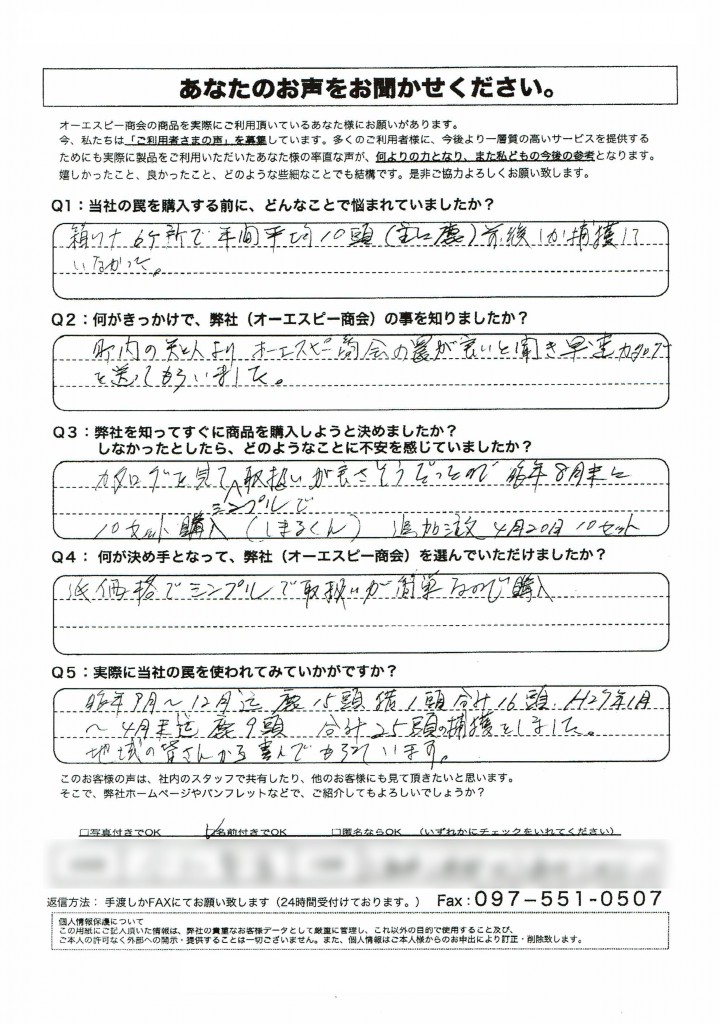 あなたのお声をお聞かせください。
オーエスピー商会の商品を実際にご利用頂いているあなた様にお願いがあります。
今、私たちは「ご利用者さまの声」を募集しています。多くのご利用者様に、今後より一層質の高いサービスを提供する
ためにも実際に製品をご利用いただいたあなた様の率直な声が、何よりの力となり、また私どもの今後の参考となります。
嬉しかったこと、良かったこと、どのような些細なことでも結構です。是非ご協力よろしくお願い致します。
Q1：当社の罠を購入する前に、どんなことで悩まれていましたか？
箱ワナ 6ヶ所で年間平均10頭(主に鹿)前後しか捕獲して
いなかった。
Q2：何がきっかけで、弊社（オーエスピー商会）の事を知りましたか？
町内の知人より オーエスピー商会の罠が良いと聞き早速カタログ
を送ってもらいました。
Q3：弊社を知ってすぐに商品を購入しようと決めましたか？
しなかったとしたら、どのようなことに不安を感じていましたか？
カタログを見て取扱いが良さそうだったので 昨年8月末に
シンプルで
10セット購入(しまるくん) 追加注文4月20日10セット
Q4： 何が決め手となって、弊社（オーエスピー商会）を選んでいただけましたか？
低価格でシンプルで取扱いが簡単なので購入
Q5：実際に当社の罠を使われてみていかがですか？
昨年9月〜12月迄 鹿15頭猪1頭合計16頭、H27年1月
〜4月末迄鹿9頭 合計25頭の捕獲をしました。
地域の皆さんから喜んでもらています。
このお客様の声は、社内のスタッフで共有したり、他のお客様にも見て頂きたいと思います。
そこで、弊社ホームページやパンフレットなどで、ご紹介してもよろしいでしょうか？
□写真付きでOK □名前付きでOK □匿名ならOK （いずれかにチェックをいれてください）
返信方法： 手渡しかFAXにてお願い致します（24時間受付ております。） Fax：097-551-0507
個人情報保護について
この用紙にご記入頂いた情報は、弊社の貴重なお客様データとして厳重に管理し、これ以外の目的で使用すること及び、
ご本人の許可なく外部への開示・提供することは一切ございません。また、個人情報はご本人様からのお申出により訂正・削除致します。